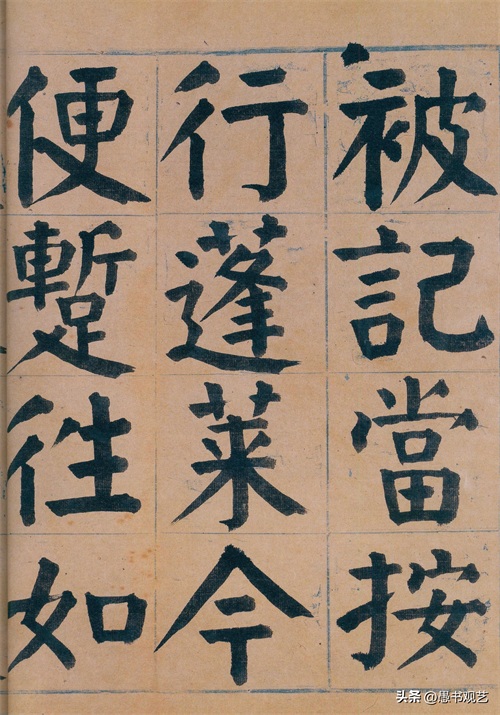 被記當按
行蓬萊今
便蹔往如
头条 @愚书观艺